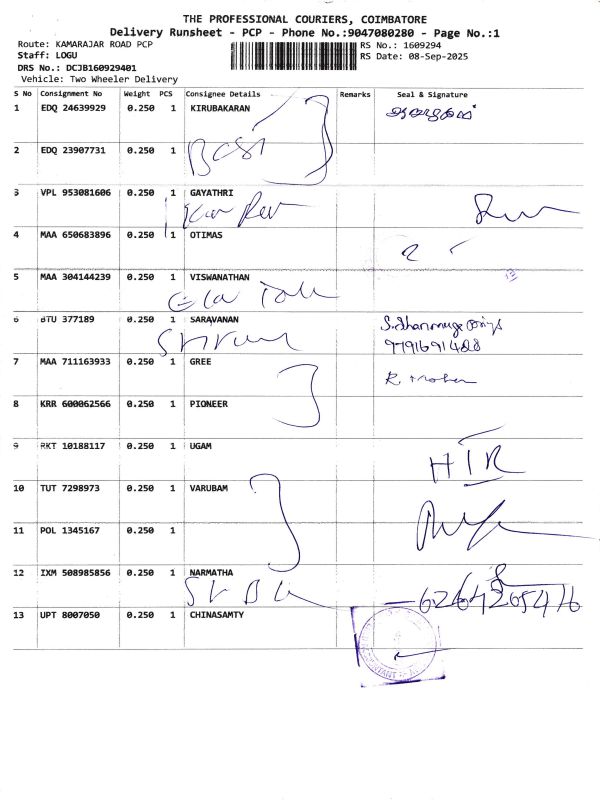 THE PROFESSIONAL COURIERS, COIMBATORE
Delivery Runsheet - PCP - Phone No.:9047080280 - Page No.:1
Route: KAMARAJAR ROAD PCP
RS No.: 1609294
Staff: LOGU
RS Date: 08-Sep-2025
DRS No.: DCJB160929401
Vehicle: Two Wheeler Delivery
S No Consignment No Weight PCS Consignee Details Remarks Seal & Signature
1 EDQ 24639929 0.250 1 KIRUBAKARAN
2 EDQ 23907731 0.250 1
3 VPL 953081606 0.250 1 GAYATHRI
4 MAA 650683896 0.250 1 OTIMAS
5 MAA 304144239 0.250 1 VISWANATHAN
6 BTU 377189 0.250 1 SARAVANAN
9791691428
7 MAA 711163933 0.250 1 GREE
8 KRR 600062566 0.250 1 PIONEER
9 RKT 10188117 0.250 1 UGAM
10 TUT 7298973 0.250 1 VARUBAM
11 POL 1345167 0.250 1
12 IXM 508985856 0.250 1 NARMATHA
13 UPT 8007050 0.250 1 CHINASAMTY